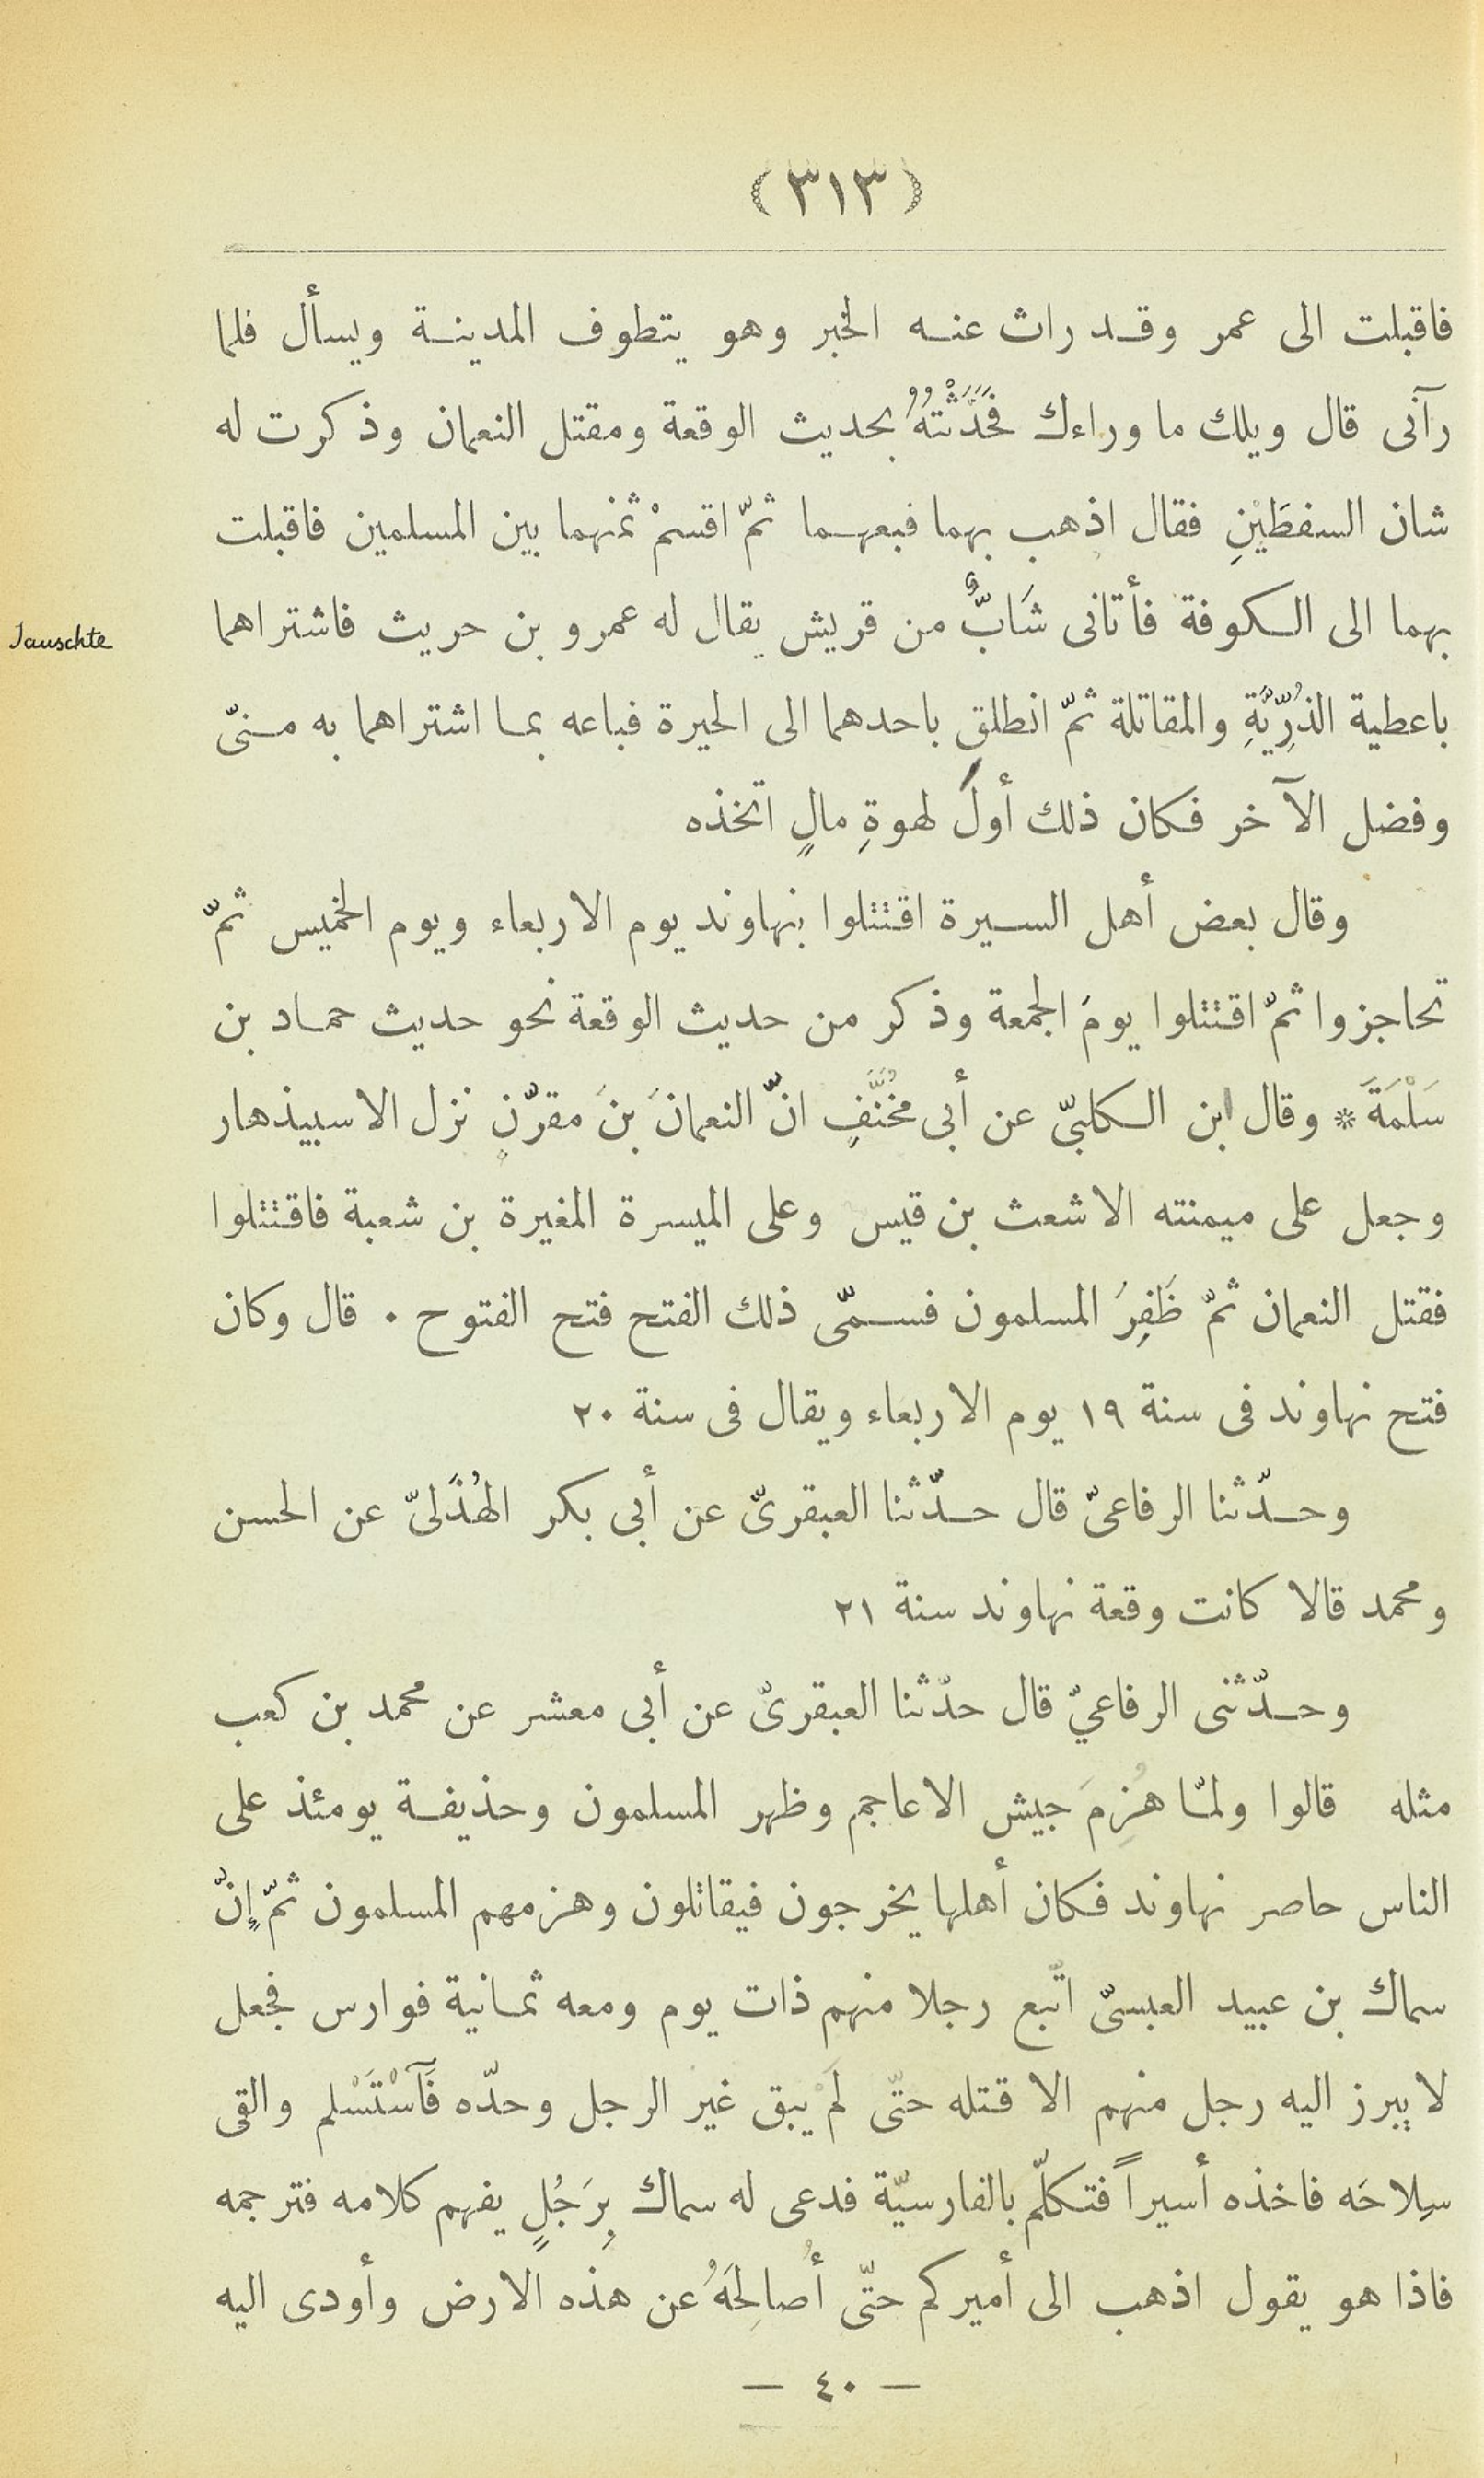 (٣١٣)
فاقبلت الى عمر وقد راث عنه الخبر وهو يتطوف المدينة ويسأل فلما
رآنى قال ويلك ما وراءك فَحَدَّثْتُهُ بحديث الوقعة ومقتل النعمان وذكرت له
شان السفطَيْنِ فقال اذهب بهما فبعهما ثمّ اقسمْ ثمنهما بين المسلمين فاقبلت
بهما الى الكوفة فأتانى شَابٌّ من قريش يقال له عمرو بن حريث فاشتراهما
Tauschte
باعطية الذُرِّيَّةِ والمقاتلة ثمّ انطلق باحدهما الى الحيرة فباعه بما اشتراهما به منىّ
وفضل الآخر فكان ذلك أولَ لهوةِ مالٍ اتخذه
وقال بعض أهل السيرة اقتتلوا بنهاوند يوم الاربعاء ويوم الخميس ثمّ
تحاجزوا ثمّ اقتتلوا يومَ الجمعة وذكر من حديث الوقعة نحو حديث حماد بن
سَلْمَةَ * وقال ابن الكلبىّ عن أبى مخُنَّفٍ انّ النعمانَ بنَ مقرّنٍ نزل الاسبيذهار
وجعل على ميمنته الاشعث بن قيس وعلى الميسرة المغيرة بن شعبة فاقتتلوا
فقتل النعمان ثمّ ظَفِرَ المسلمون فسمّى ذلك الفتح فتح الفتوح . قال وكان
فتح نهاوند فى سنة ١٩ يوم الاربعاء ويقال فى سنة ٢٠
وحدّثنا الرفاعىّ قال حدّثنا العبقرىّ عن أبى بكر الهُذَلىّ عن الحسن
ومحمد قالا كانت وقعة نهاوند سنة ٢١
وحدّثنى الرفاعيّ قال حدّثنا العبقرىّ عن أبى معشر عن محمد بن كعب
مثله قالوا ولمّا هُزِمَ جيش الاعاجم وظهر المسلمون وحذيفة يومئذ على
الناس حاصر نهاوند فكان أهلها يخرجون فيقاتلون وهزمهم المسلمون ثمّ إنّ
سماك بن عبيد العبسىّ اتّبع رجلا منهم ذات يوم ومعه ثمانية فوارس فجعل
لا يبرز اليه رجل منهم الا قتله حتّى لَمْ يبق غير الرجل وحدّه فَآسْتَسْلم والقى
سِلاحَه فاخذه أسيراً فتكلّم بالفارسيّة فدعى له سماك بِرَجُلٍ يفهم كلامه فترجمه
فاذا هو يقول اذهب الى أميركم حتّى أُصالِحَهُ عن هذه الارض وأودى اليه
— ٤٠ —